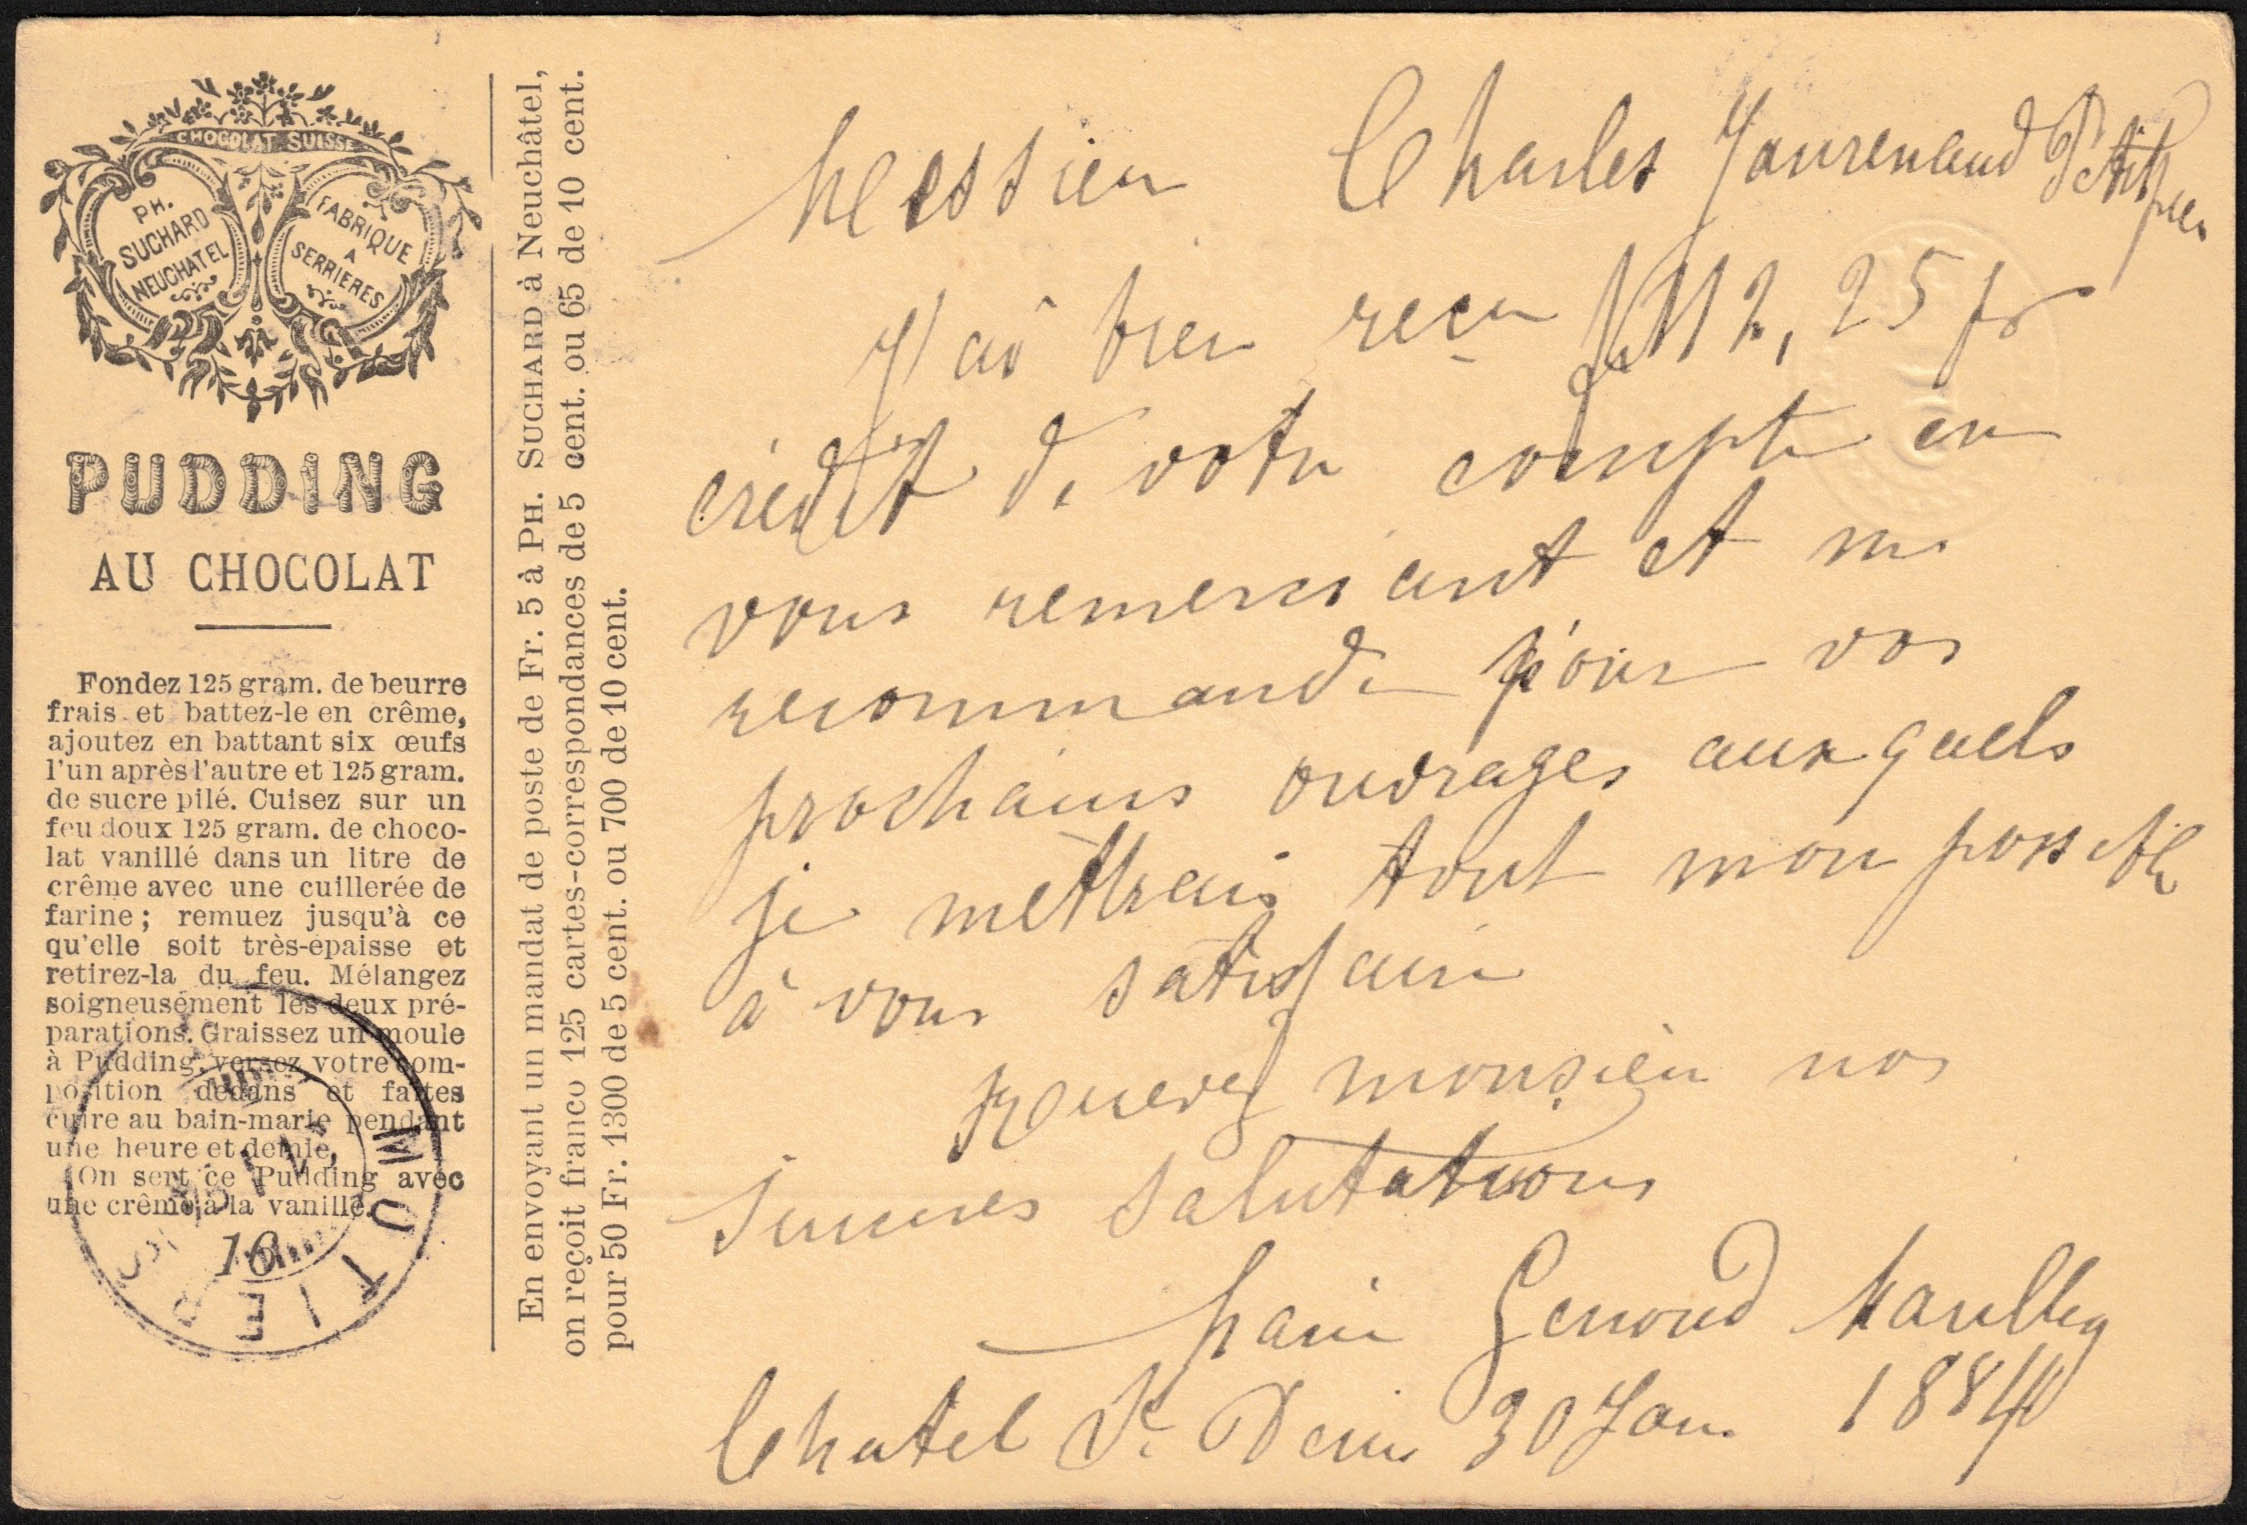 CHOCOLAT SUISSE
PH.
SUCHARD
NEUCHATEL
FABRIQUE
A
SERRIERES
PUDDING
AU CHOCOLAT
Fondez 125 gram. de beurre
frais et battez-le en crême,
ajoutez en battant six œufs
l'un après l'autre et 125 gram.
de sucre pilé. Cuisez sur un
feu doux 125 gram. de choco-
lat vanillé dans un litre de
crême avec une cuillerée de
farine; remuez jusqu'à ce
qu'elle soit très-epaisse et
retirez-la du feu. Mélangez
soigneusement les deux pré-
parations. Graissez un moule
à Pudding, versez votre com-
position dedans et faites
cuire au bain-marie pendant
une heure et demie.
On sert ce Pudding avec
une crême à la vanille.
MOUTIER
16
En envoyant un mandat de poste de Fr. 5 à PH. SUCHARD à Neuchâtel,
on reçoit franco 125 cartes-correspondances de 5 cent. ou 65 de 10 cent.
pour 50 Fr. 1300 de 5 cent. ou 700 de 10 cent.
Messieu Charles
J'ai bien reçu 112,25 fr
crédit de votre compte en
vous remerciant et me
recommande pour vos
prochains ouvrages auxquels
je mettrais tout mon possible
à vous satisfaire
Recevez monsieur nos
sinceres salutations
Genoud
Chatel St Denis 30 Jan. 1884